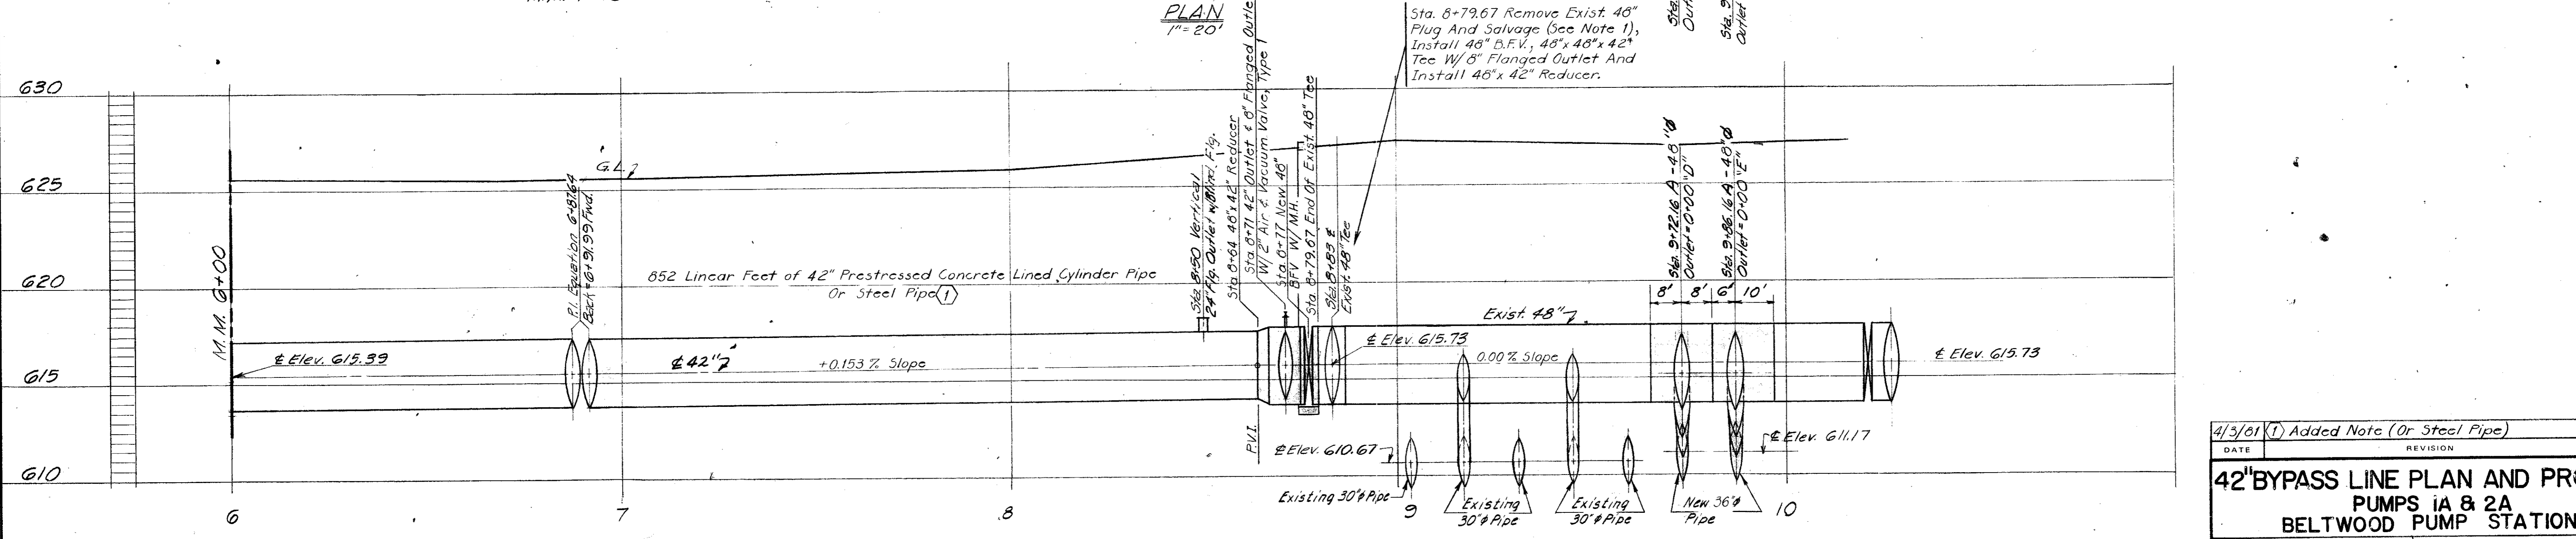 PLAN
1"=20'
Sta. 8+79.67 Remove Exist. 48"
Plug And Salvage (See Note 1),
Install 48" B.F.V., 48"x 48"x 42"
Tee W/8" Flanged Outlet And
Install 48"x 42" Reducer.
630
625
620
615
610
M.M. 6+00
G.L.
P.I. Equation 6+87.64
Back = 6+91.99 Fwd.
852 Linear Feet of 42" Prestressed Concrete Lined Cylinder Pipe
Or Steel Pipe 1
Sta. 8+50 Vertical
24" Flg. Outlet w/Blind Flg.
Sta 8+64 48"x 42" Reducer
Sta. 8+71 42" Outlet & 8" Flanged Outle
W/ 2" Air & Vacuum Valve, Type 1
Sta. 8+77 New 48"
BFV W/ M.H.
Sta. 8+79.67 End Of Exist. 48" Tee
Sta. 8+83 ℄
Exist. 48" Tee
Sta. 9+72.16 A - 48"Ø
Outlet = 0+00 "D"
Sta. 9+86.16 A - 48"Ø
Outlet = 0+00 "E"
8' 8' 6' 10'
Exist. 48"
℄ Elev. 615.39
℄ 42"
+0.153 % Slope
℄ Elev. 615.73
0.00 % Slope
℄ Elev. 615.73
P.V.I.
℄ Elev. 610.67
℄ Elev. 611.17
Existing 30"Ø Pipe
Existing
30"Ø Pipe
Existing
30"Ø Pipe
New 36"Ø
Pipe
6 7 8 9 10
4/3/81 1 Added Note (Or Steel Pipe)
DATE REVISION
42" BYPASS LINE PLAN AND PRO
PUMPS 1A & 2A
BELTWOOD PUMP STATION